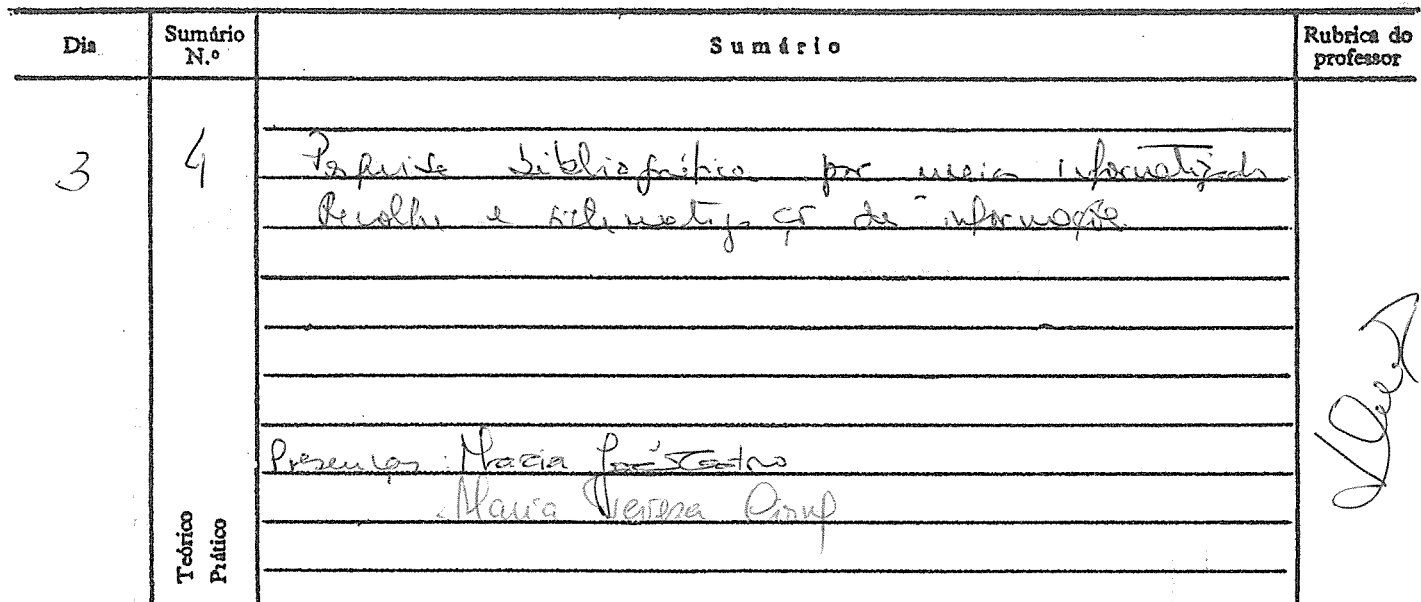 Dia
Sumário N.º
Sumário
Rubrica do professor
3
4
Pesquisa bibliográfica por meios informatizados
Recolha e sistematização de informação
Presenças: Maria José Castro
Maria Teresa
Teórico
Prático